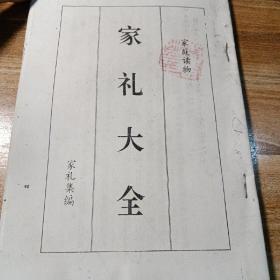 家庭读物
家礼大全
家礼集编